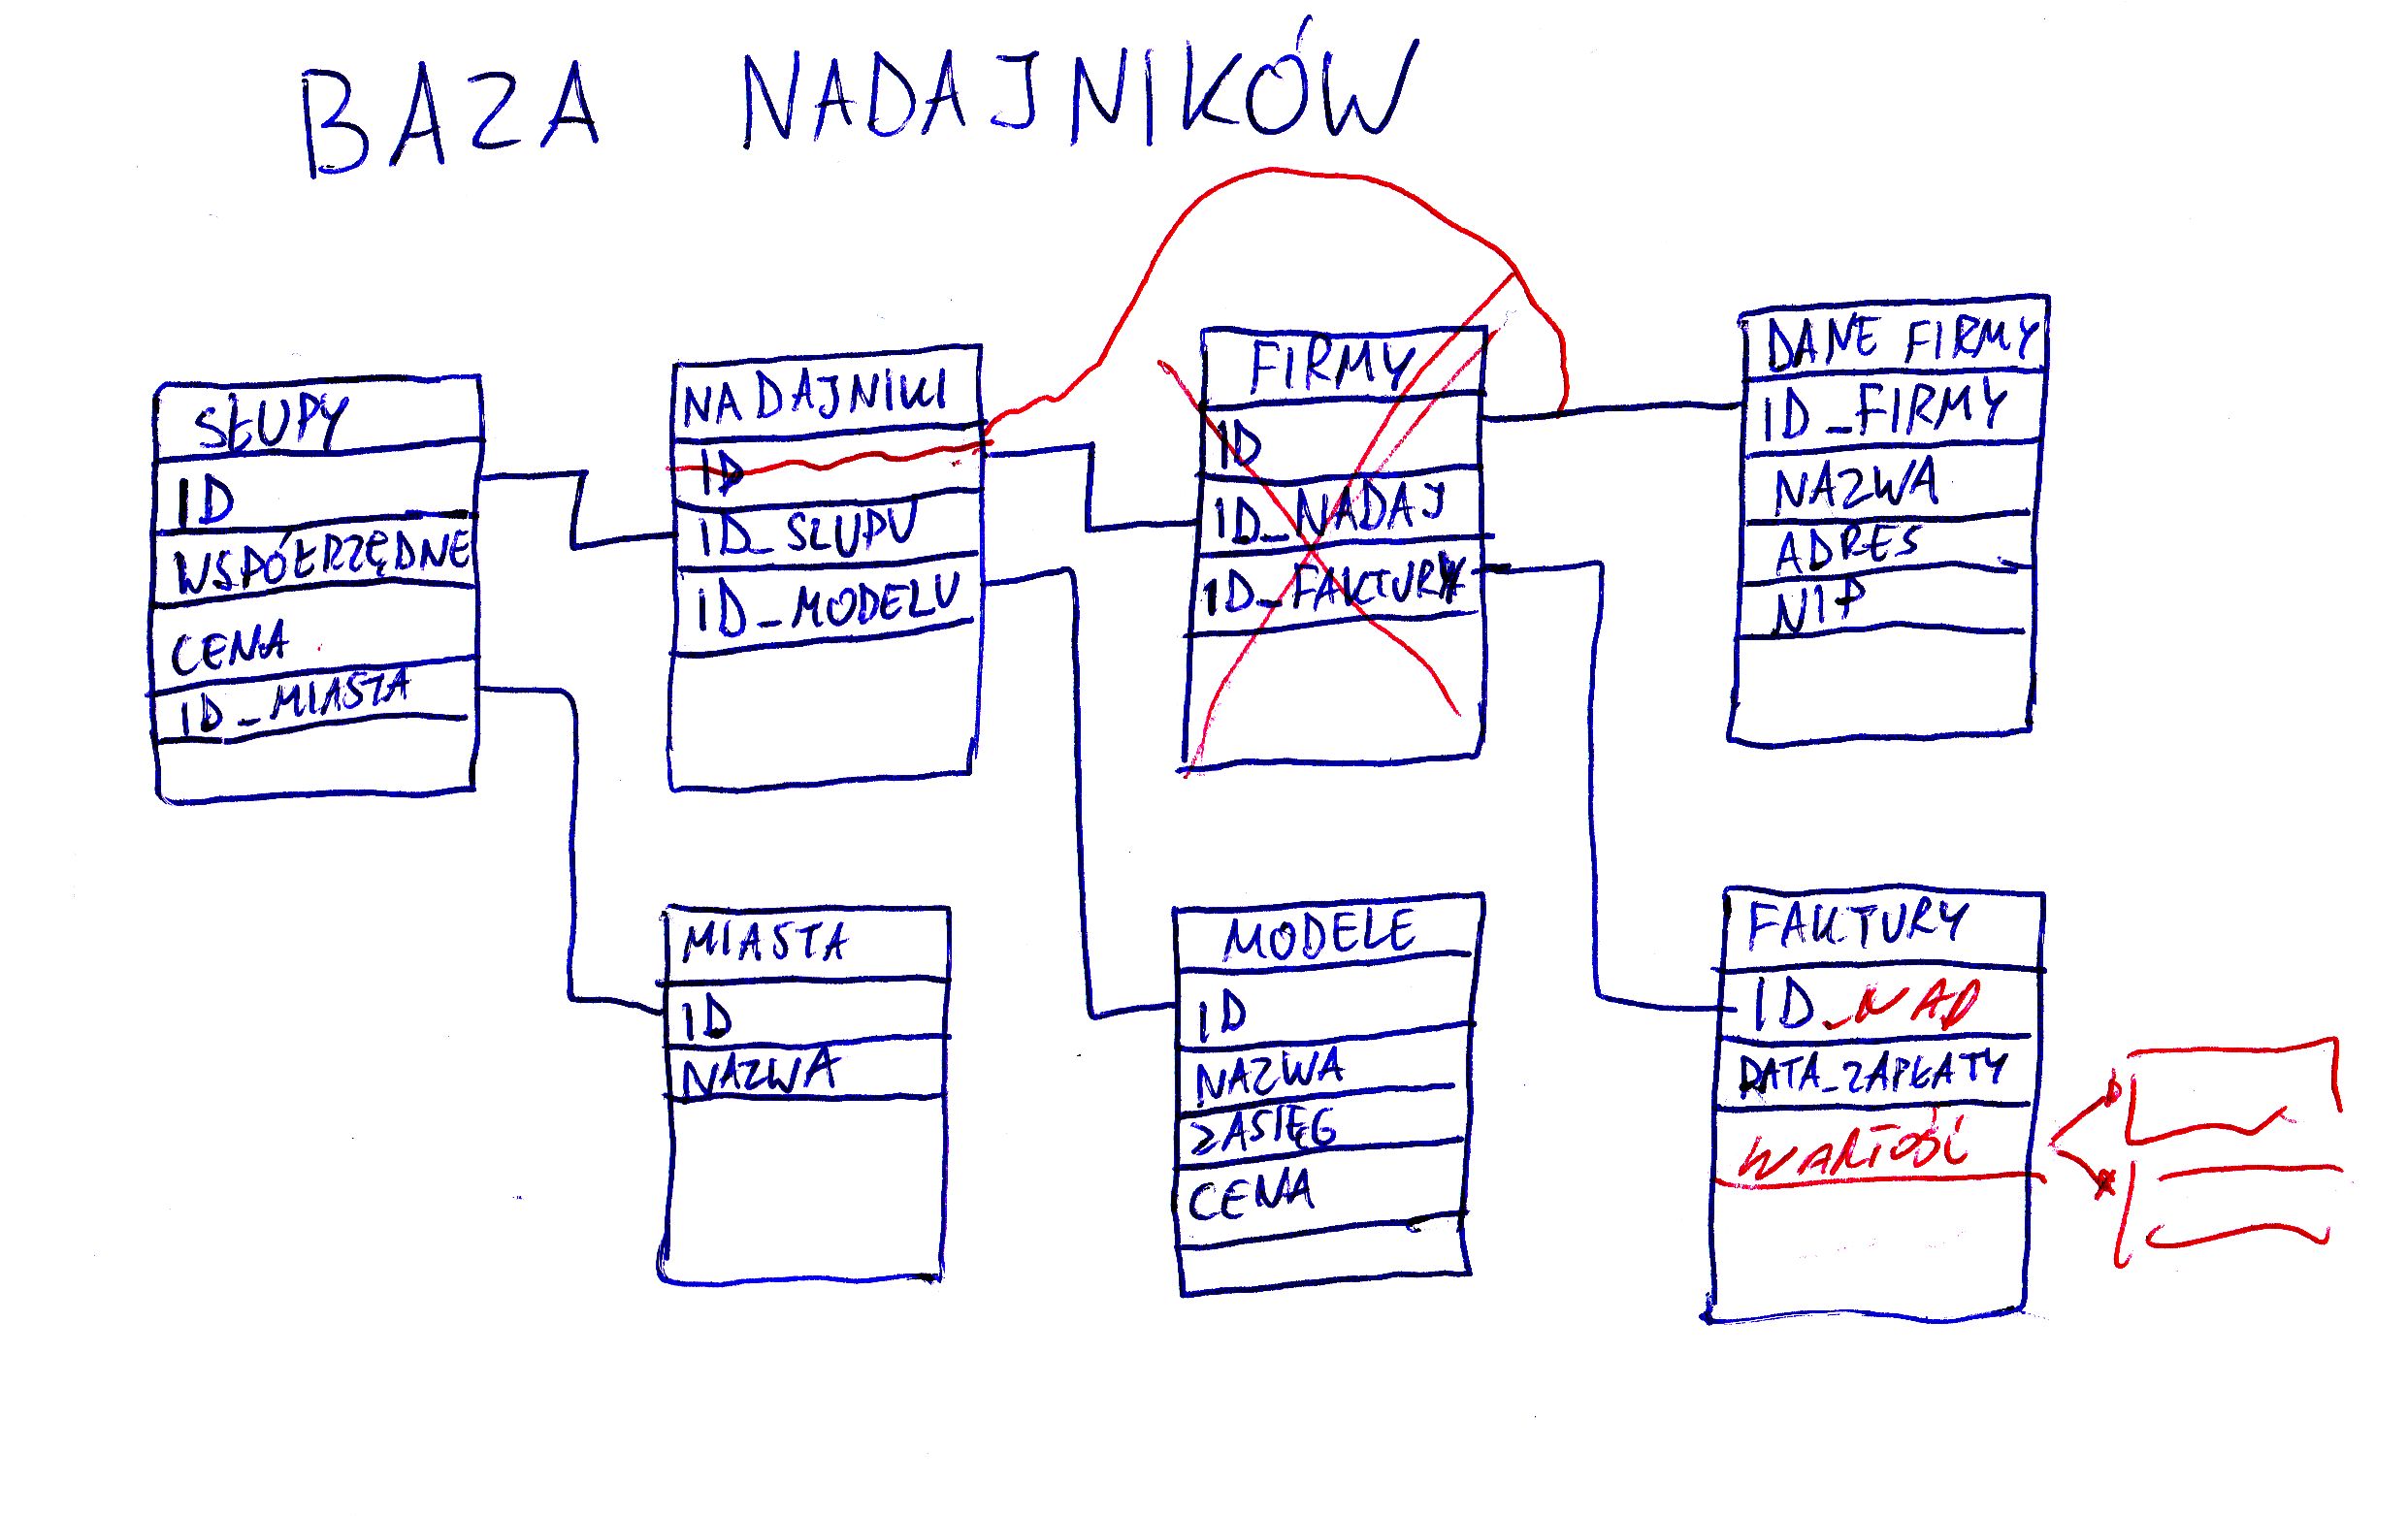 BAZA NADAJNIKÓW
SŁUPY
ID
WSPÓŁRZĘDNE
CENA
ID_MIASTA
NADAJNIKI
ID
ID_SLUPU
ID_MODELU
FIRMY
ID
ID_NADAJ
ID_FAKTURY
DANE FIRMY
ID_FIRMY
NAZWA
ADRES
NIP
MIASTA
ID
NAZWA
MODELE
ID
NAZWA
ZASIĘG
CENA
FAKTURY
ID_NAD
DATA_ZAPŁATY
WARTOŚĆ